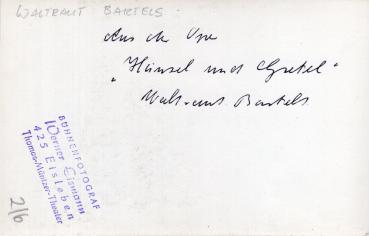 WALTRAUT BARTELS.
Aus der Oper
„Hänsel und Gretel“
Waltraut Bartels
BÜHNENFOTOGRAF
Werner Eismann
425 Eisleben
Thomas-Müntzer-Theater
2/6